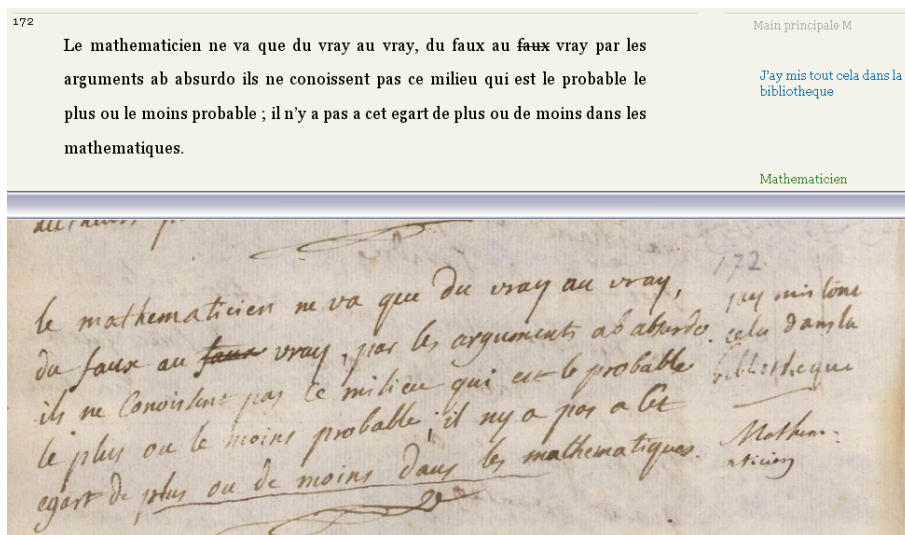 172
Main principale M
Le mathematicien ne va que du vray au vray, du faux au faux vray par les
arguments ab absurdo ils ne conoissent pas ce milieu qui est le probable le
J'ay mis tout cela dans la
bibliotheque
plus ou le moins probable ; il n'y a pas a cet egart de plus ou de moins dans les
mathematiques.
Mathematicien
172.
le mathematicien ne va que du vray au vray,
du faux au faux vray, par les arguments ab absurdo
ils ne conoissent pas ce milieu qui est le probable
le plus ou le moins probable ; il ny a pas a cet
egart de plus ou de moins dans les mathematiques.
jay mis tout
cela dans la
bibliotheque
Mathem-
aticien